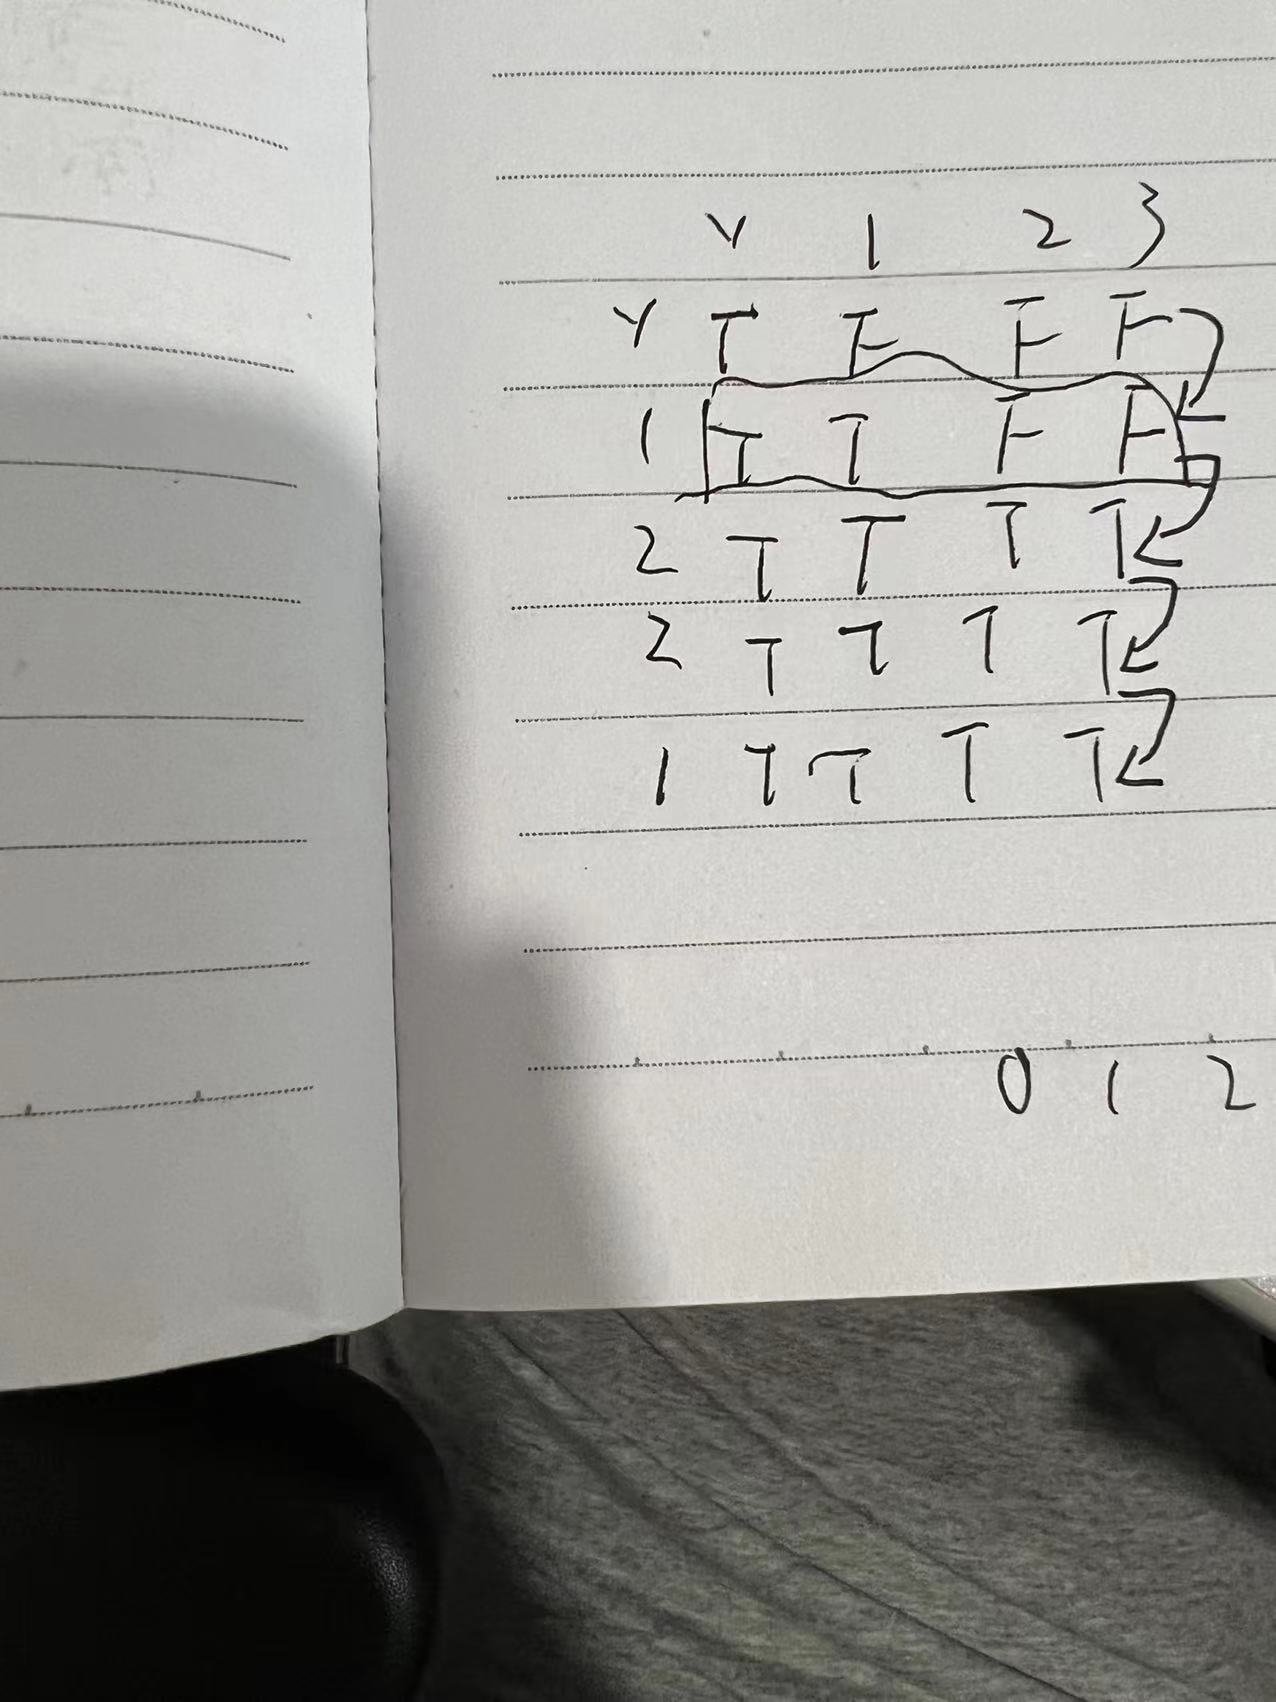 v 1 2 3
v T F F F
1 T T F F
2 T T T T
2 T T T T
1 T T T T
0 1 2